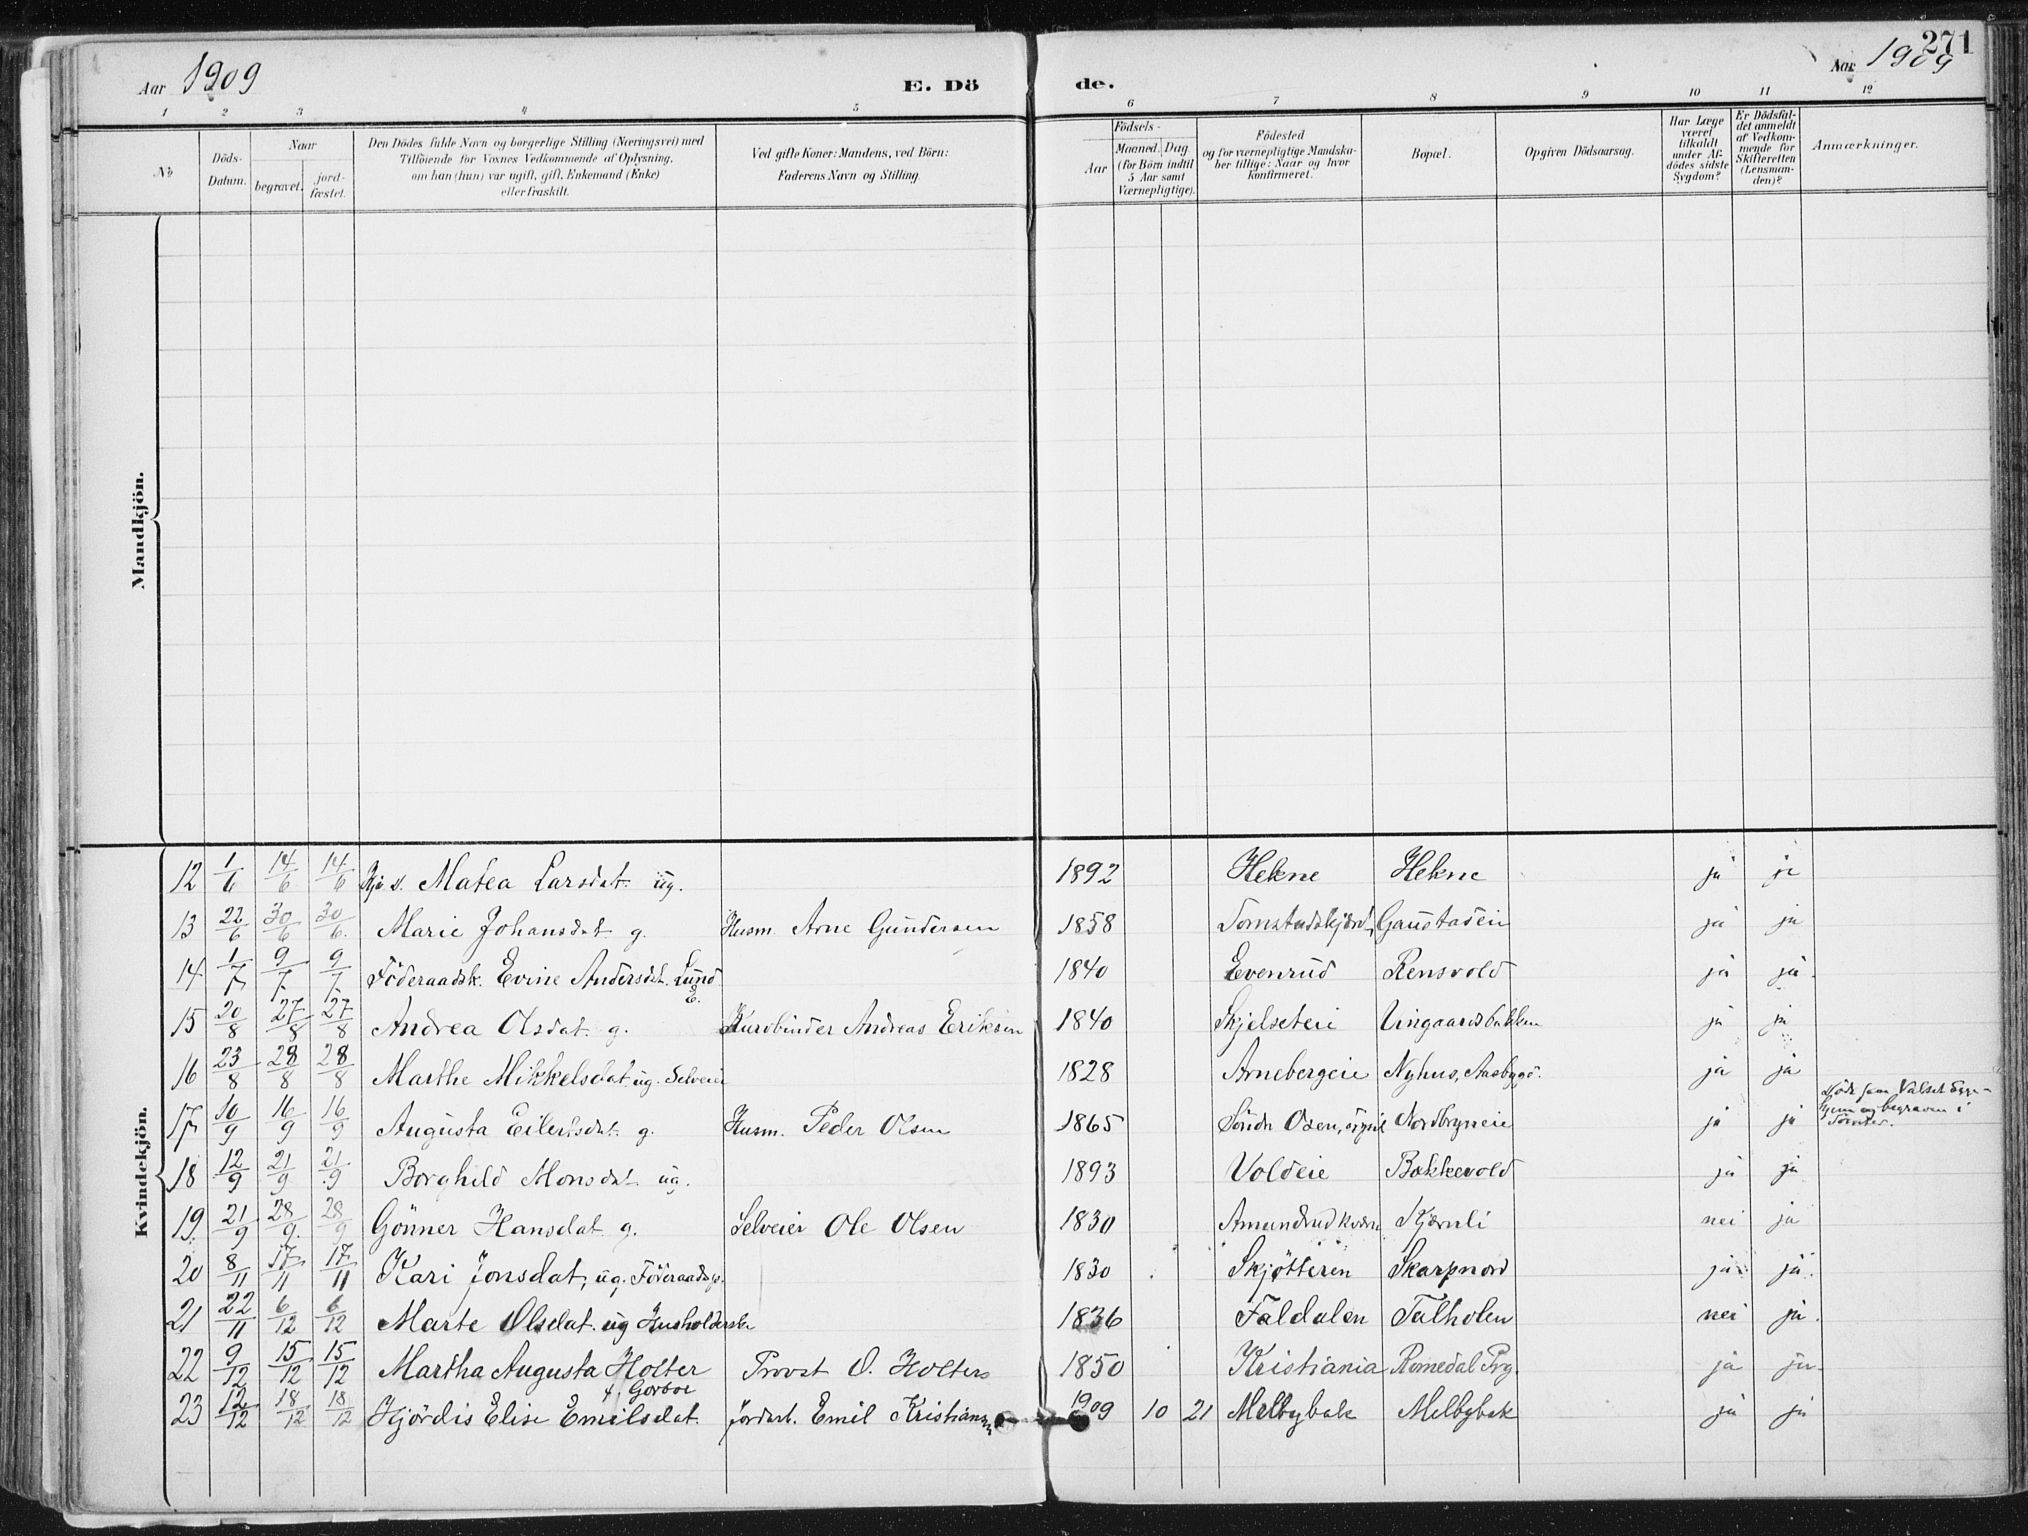 271
Aar 1909
E. Dö
de.
Aar 1909
1 2 3 4 5 6 7 8 9 10 11 12
№
Döds-Datum.
Naar
begravet.
jord-fæstet.
Den Dödes fulde Navn og borgerlige Stilling (Næringsvei) med
Tilföiende for Voxnes Vedkommende af Oplysning,
om han (hun) var ugift, gift, Enkemand (Enke)
eller fraskilt.
Ved gifte Koner: Mandens, ved Börn:
Faderens Navn og Stilling.
Födsels-
Aar
Maaned. Dag
(for Börn indtil
5 Aar samt
Værnepligtige).
Födested
og for værnepligtige Mandska-
ber tillige: Naar og hvor
konfirmeret.
Bopæl.
Opgiven Dödsaarsag.
Har Læge
været
tilkaldt
under Af-
dödes sidste
Sygdom?
Er Dödsfal-
det anmeldt
af Vedkom-
mende for
Skifteretten
(Lensman-
den)?
Anmærkninger.
Mandkjön.
Kvindekjön.
12 1/6 14/6 14/6 Matea Larsdat. ug. 1892 Hekne Hekne ja ja
13 22/6 30/6 30/6. Marie Johansdat g. Husm. Arne Gundersen 1858 Gaustadeie ja ja
14 1/7 9/7. 9/7. Föderaadsk. Evine Andersdat. Lund E. 1840 Evenrud Rensvold ja ja
15 20/8 27/8 27/8 Andrea Olsdat g. Kurvbinder Andreas Eriksen 1840 Skjelseteie Vingaardsbakken ja ja
16 23/8 28/8 28/8 Marthe Mikkelsdat. ug. Selveier 1828 Arnebergeie Nyhus, Aasbygd. ja ja
17 10/9 16/9 16/9 Augusta Eilertsdat. g. Husm. Peder Olsen 1865 Söndr Osen, Nordbryneie ja ja
Död som Valset
og begraven i
18 12/9 21/9 21/9 Borghild Monsdat. ug. 1893 Voldeie Bakkevold ja ja
19. 21/9 28/9. 28/9 Gönner Hansdat g. Selveier Ole Olsen 1830 Amundrud kværn Kjernli nei ja
20 8/11 17/11 17/11 Kari Jonsdat, ug. Föderaadsk. 1830 Skjötteren Skarpnord ja ja.
21 22/11 6/12 6/12 Marte Olsdat. ug Husholderske 1836 Faldalen Talholen nei ja.
22 9/12 15/12 15/12 Martha Augusta Holter f. Gorbor Provst O. Holters 1850 Kristiania Romedal Prg. ja ja.
23 12/12 18/12 18/12 Hjördis Elise Emilsdat. Jordarb. Emil Kristiansen 1909 10 21 Melbybak Melbybak ja ja